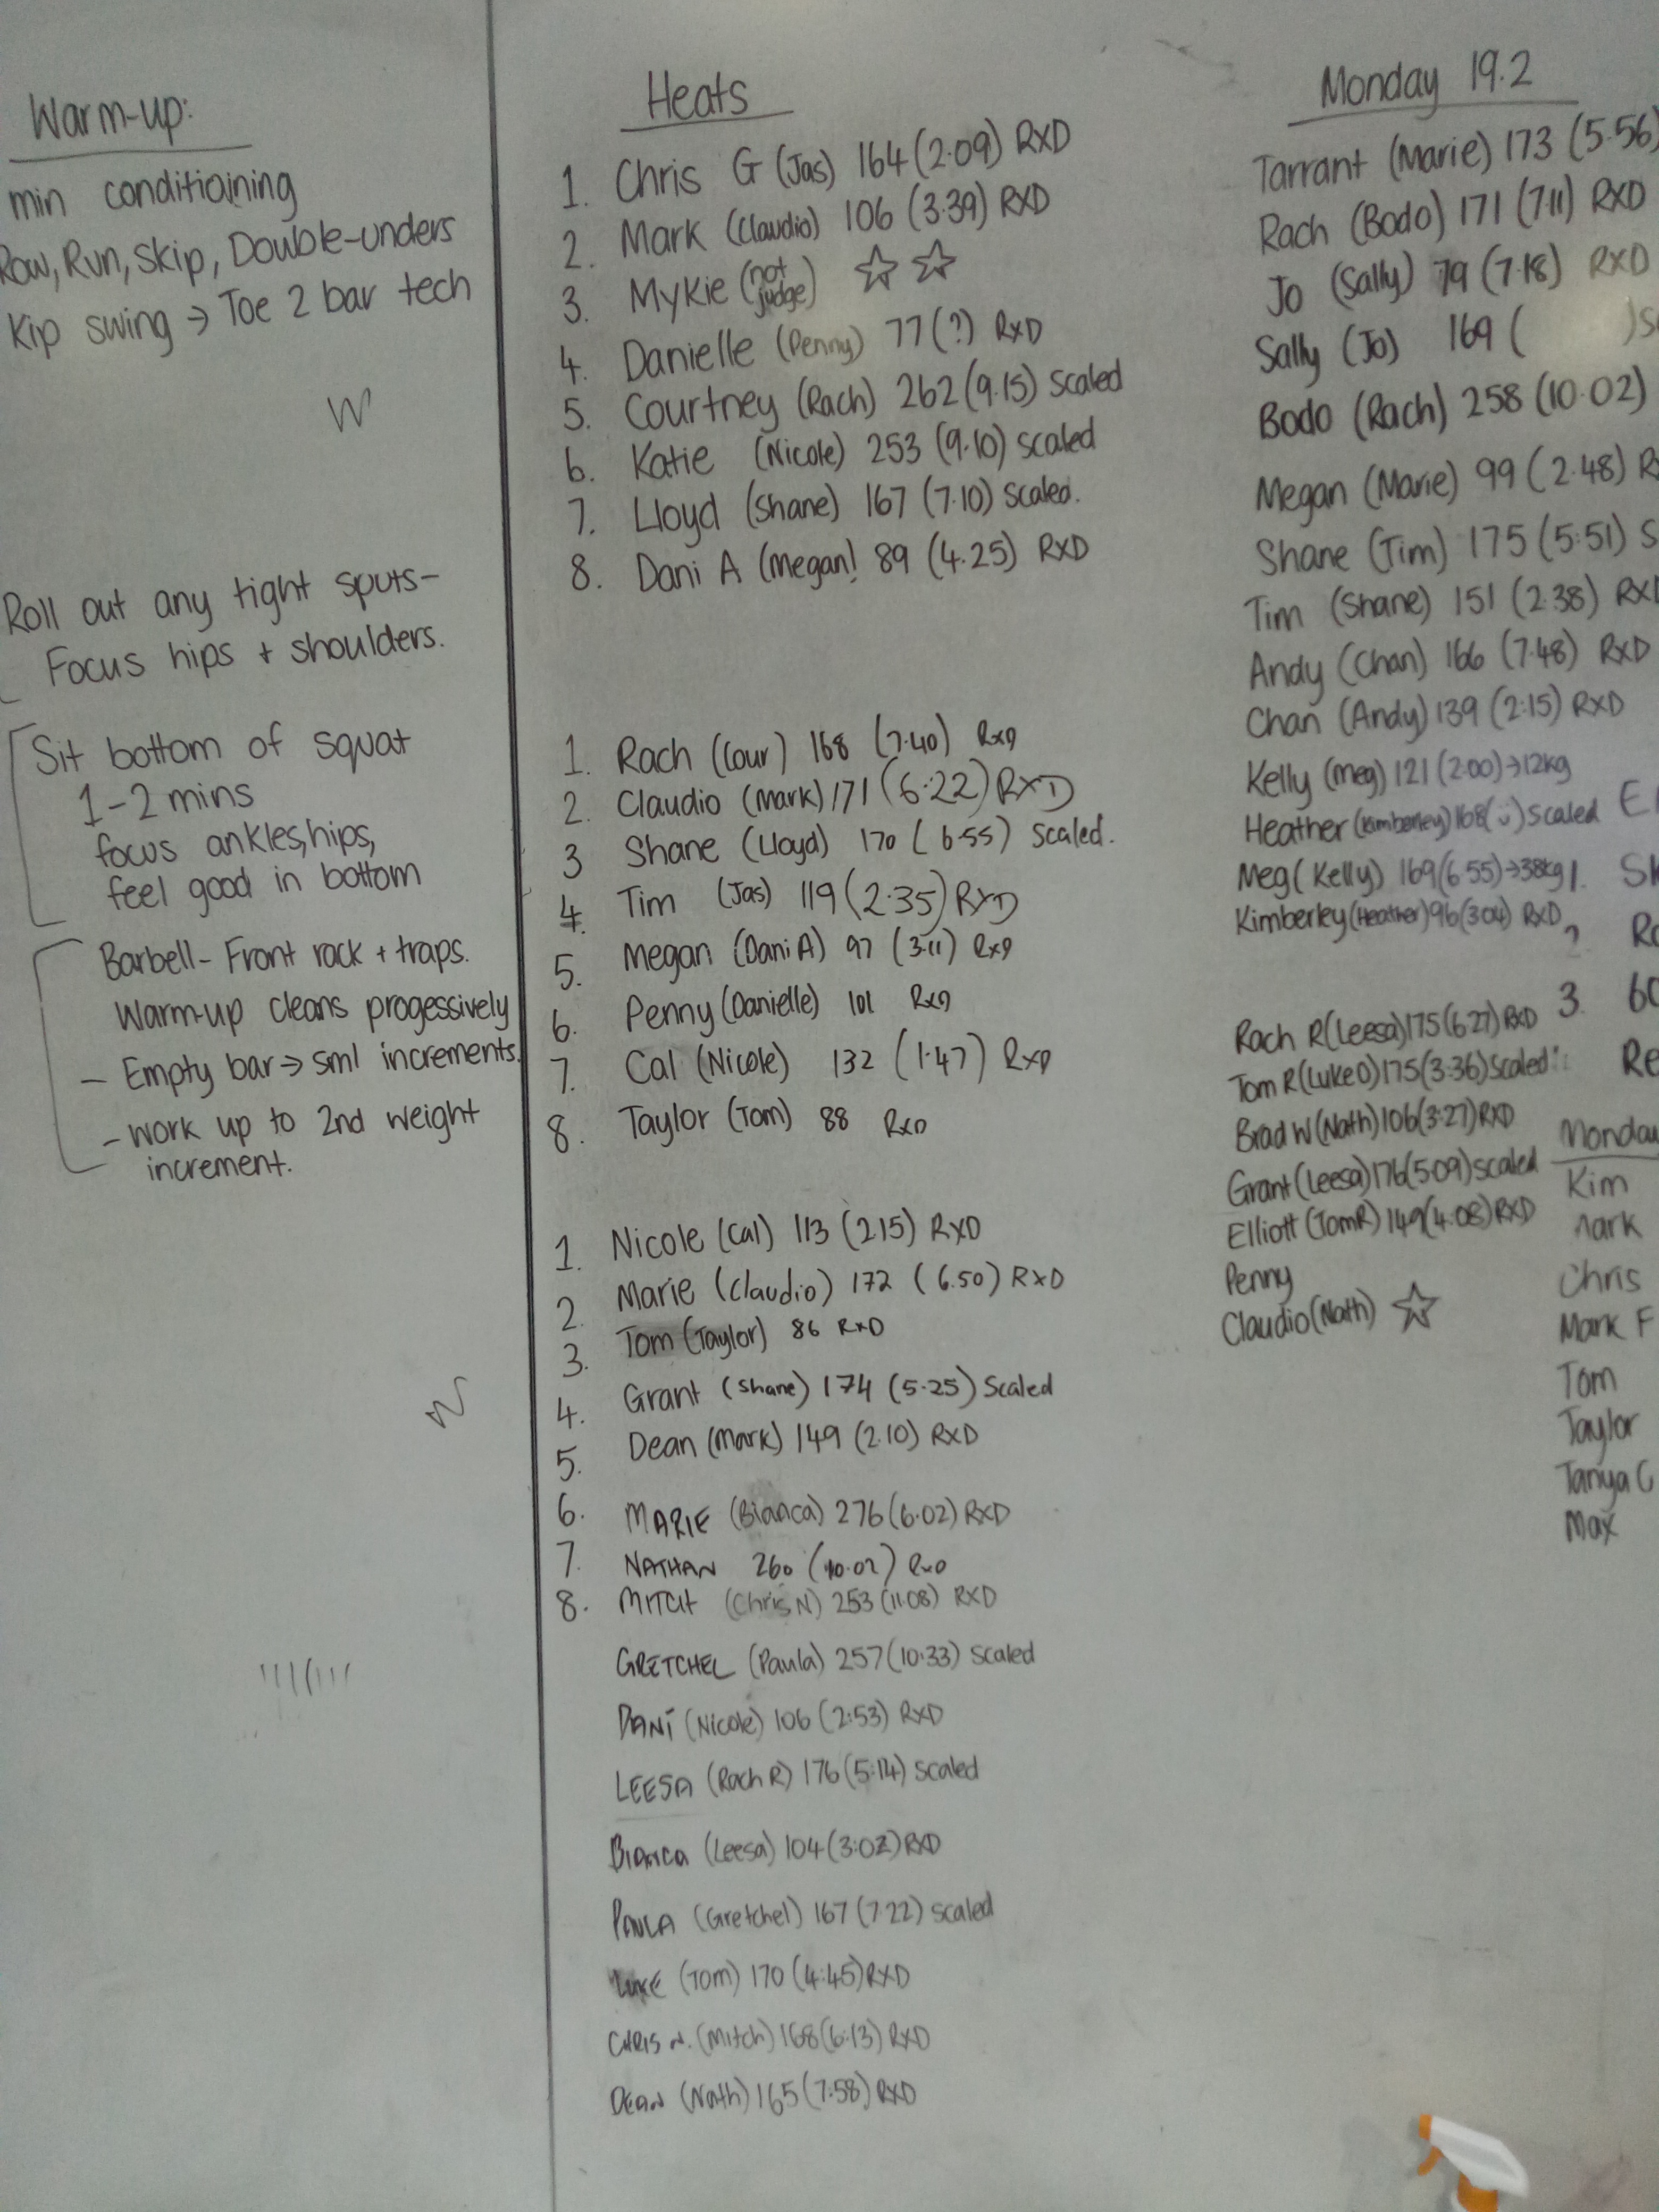 Warm-up:
min conditioining
Row, Run, Skip, Double-unders
Kip swing → Toe 2 bar tech
Roll out any tight spots-
Focus hips + shoulders.
Sit bottom of squat
1-2 mins
focus ankles, hips,
feel good in bottom
Barbell- Front rack + traps.
Warm-up cleans progessively
- Empty bar → sml increments.
- work up to 2nd weight
increment.
Heats
1. Chris G (Jas) 164 (2.09) RXD
2. Mark (Claudio) 106 (3.39) RXD
3. Mykie (not judge) ☆ ☆
4. Danielle (Penny) 77 (?) RxD
5. Courtney (Rach) 262 (9.15) scaled
6. Katie (Nicole) 253 (9.10) scaled
7. Lloyd (Shane) 167 (7.10) scaled.
8. Dani A (Megan! 89 (4.25) RXD
1. Rach (Cour) 168 (7.40) RxD
2. Claudio (Mark) 171 (6:22) RXD
3 Shane (Lloyd) 170 (6.55) scaled.
4. Tim (Jas) 119 (2.35) RXD
5. Megan (Dani A) 97 (3.11) RxD
6. Penny (Danielle) 101 RxD
7. Cal (Nicole) 132 (1.47) RxD
8. Taylor (Tom) 88 RxD
1. Nicole (Cal) 113 (2.15) RXD
2. Marie (Claudio) 172 (6.50) RXD
3. Tom (Taylor) 86 RXD
4. Grant (Shane) 174 (5.25) Scaled
5. Dean (Mark) 149 (2.10) RXD
6. MARIE (Bianca) 276 (6.02) RXD
7. NATHAN 260 (10.02) RxD
8. MITCH (Chris N) 253 (11.08) RXD
GRETCHEL (Paula) 257 (10:33) scaled
DANI (Nicole) 106 (2:53) RXD
LEESA (Rach R) 176 (5:14) scaled
BIANCA (Leesa) 104 (3:02) RXD
PAULA (Gretchel) 167 (7.22) scaled
LUKE (Tom) 170 (4:45) RXD
CHRIS N. (Mitch) 168 (6:13) RXD
DEAN (Nath) 165 (7:58) RXD
Monday 19.2
Tarrant (Marie) 173 (5.56)
Rach (Bodo) 171 (7.11) RXD
Jo (Sally) 79 (7.18) RXD
Sally (Jo) 169 ( ) S
Bodo (Rach) 258 (10.02)
Megan (Marie) 99 (2.48) R
Shane (Tim) 175 (5:51) S
Tim (Shane) 151 (2.38) RXD
Andy (Chan) 166 (7.48) RXD
Chan (Andy) 139 (2:15) RXD
Kelly (meg) 121 (2:00) → 12kg
Heather (Kimberley) 168 (ن) scaled
Meg (Kelly) 169 (6.55) → 38kg
Kimberley (Heather) 96 (3.04) RXD
Rach R (Leesa) 175 (6.27) RXD
Tom R (Luke D) 175 (3:36) scaled
Brad W (Nath) 106 (3:27) RXD
Grant (Leesa) 176 (5.09) scaled
Elliott (Tom R) 149 (4.08) RXD
Penny
Claudio (Nath) ☆
1. Sk
2 Ro
3. 60
Re
Monday
Kim
Mark
Chris
Mark F
Tom
Taylor
Tanya C
Max